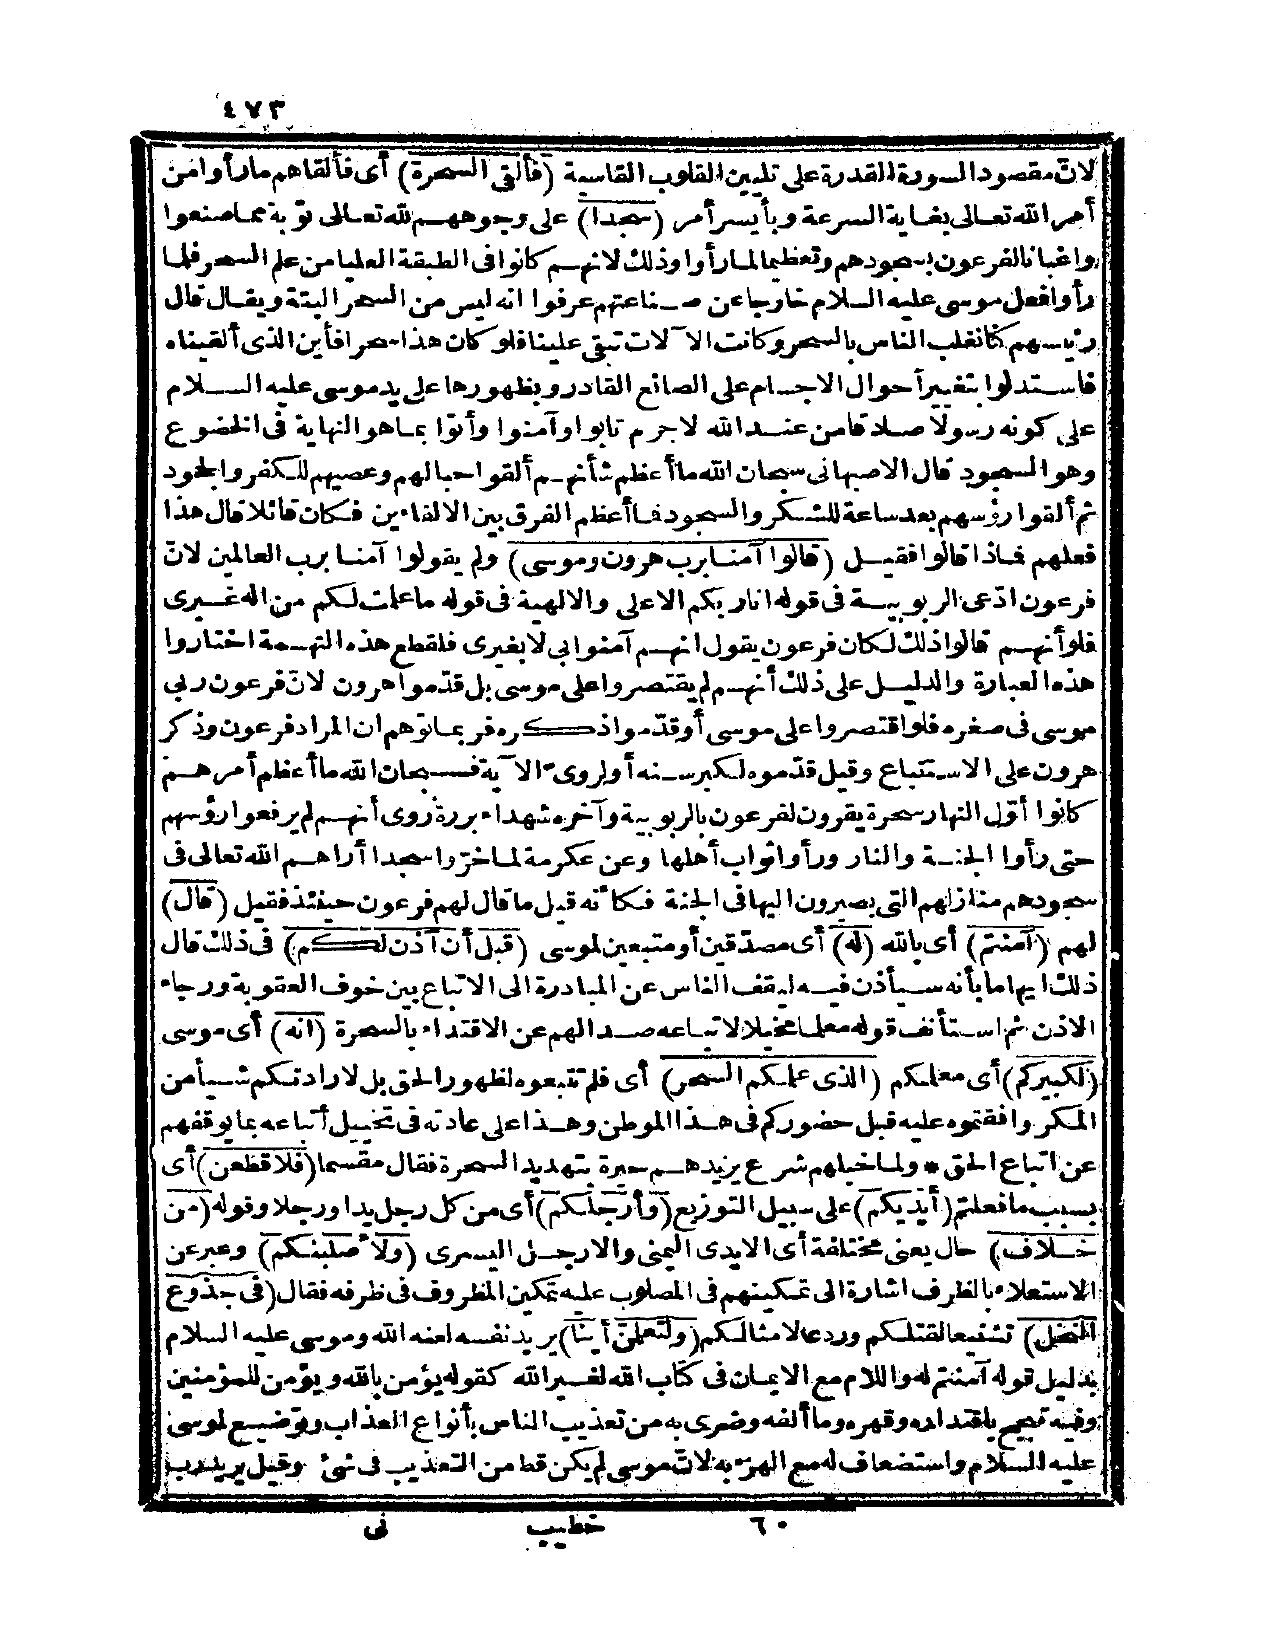 ٤٧٣
لانّ مقصود السورة القدرة على تليين القلوب القاسية (فألقى السحرة) أى فألقاهم مارأوا من
أمر الله تعالى بغاية السرعة وبأيسر أمر (سجدا) على وجوههم لله تعالى توبة مما صنعوا
واغبانا لفرعون بسجودهم وتعظيما لما رأوا وذلك لانهم كانوا فى الطبقة العليا من علم السحر فلما
رأوا فعل موسى عليه السلام خارجا عن صناعتهم عرفوا انه ليس من السحر البتة ويقال قال
رئيسهم كنا نغلب الناس بالسحر وكانت الآلات تبقى علينا فلو كان هذا سحرا فأين الذى ألقيناه
فاستدلوا بتغير أحوال الاجسام على الصانع القادر وبظهورها على يد موسى عليه السلام
على كونه رسولا صادقا من عند الله لاجرم تابوا وآمنوا وأتوا بما هو النهاية فى الخضوع
وهو السجود قال الاصبهانى سبحان الله ما أعظم شأنهم ألقوا حبالهم وعصيهم للكفر والجحود
ثم ألقوا رؤسهم بعد ساعة للشكر والسجود فما أعظم الفرق بين الالقاءين فكان قائلا قال هذا
فعلهم فماذا قالوا فقيل (قالوا آمنا برب هرون وموسى) ولم يقولوا آمنا برب العالمين لانّ
فرعون ادّعى الربوبية فى قوله انا ربكم الاعلى والالهية فى قوله ما علمت لكم من اله غيرى
فلو أنهم قالوا ذلك لكان فرعون يقول انهم آمنوا بى لا بغيرى فلقطع هذه التهمة اختاروا
هذه العبارة والدليل على ذلك أنهم لم يقتصروا على موسى بل قدّموا هرون لانّ فرعون ربى
موسى فى صغره فلو اقتصروا على موسى أو قدّموا ذكره فربما توهم ان المراد فرعون وذكر
هرون على الاستتباع وقيل قدّموه لكبر سنه أولروىّ الآية فسبحان الله ما أعظم أمرهم
كانوا أوّل النهار سحرة يقرون لفرعون بالربوبية وآخره شهداء بررة روى أنهم لم يرفعوا رؤسهم
حتى رأوا الجنة والنار ورأوا ثواب أهلها وعن عكرمة لما خرّوا سجدا أراهم الله تعالى فى
سجودهم منازلهم التى يصيرون اليها فى الجنة فكأنه قيل ما قال لهم فرعون حينئذ فقيل (قال)
لهم (آمنتم) أى بالله (له) أى مصدّقين أو متبعين لموسى (قبل أن آذن لكم) فى ذلك قال
ذلك ايهاما بأنه سيأذن فيه ليقف الناس عن المبادرة الى الاتباع بين خوف العقوبة ورجاء
الاذن ثم استأنف قوله معلما مخيلا لاتباعه صدا لهم عن الاقتداء بالسحرة (انه) أى موسى
(لكبيركم) أى معلمكم (الذى علمكم السحر) أى فلم تتبعوه لظهور الحق بل لارادتكم شيأ من
المكر وافقتموه عليه قبل حضوركم فى هذا الموطن وهذا على عادته فى تخييل أتباعه بما يوقفهم
عن اتباع الحق * ولما خيلهم شرع يزيدهم حيرة بتهديد السحرة فقال مقسما (فلاقطعن) أى
بسبب ما فعلتم (أيديكم) على سبيل التوزيع (وأرجلكم) أى من كل رجل يدا ورجلا وقوله (من
خلاف) حال يعنى مختلفة أى الايدى اليمنى والارجل اليسرى (ولاصلبنكم) وعبر عن
الاستعلاء بالظرف اشارة الى تمكينهم فى المصلوب عليه تمكين المظروف فى ظرفه فقال (فى جذوع
النخل) تشنيعا لقتلكم وردعا لامثالكم (ولتعلمنّ أينا) يريد نفسه لعنه الله وموسى عليه السلام
بدليل قوله آمنتم له واللام مع الايمان فى كتاب الله لغير الله كقوله يؤمن بالله ويؤمن للمؤمنين
وفيه تبجح باقتداره وقهره وما ألفه وضرى به من تعذيب الناس بأنواع العذاب وتوضيع لموسى
عليه السلام واستضعاف له مع الهزء به لانّ موسى لم يكن قط من التعذيب فى شئ وقيل يريد رب
٦٠ خطيب نى